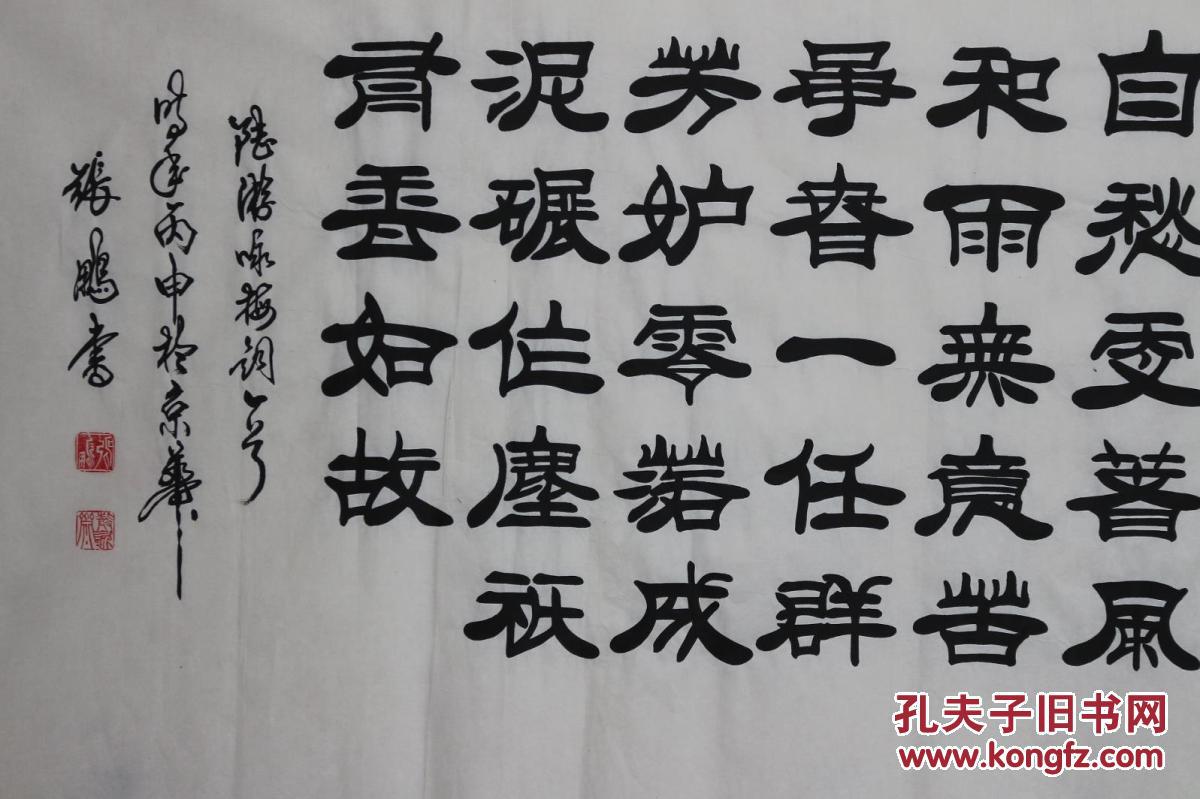 自愁更著風
和雨無意苦
爭春一任群
芳妒零落成
泥碾作塵祇
有香如故
陸游詠梅詞一首
時年丙申於京華
張鵬書
孔夫子旧书网
www.kongfz.com